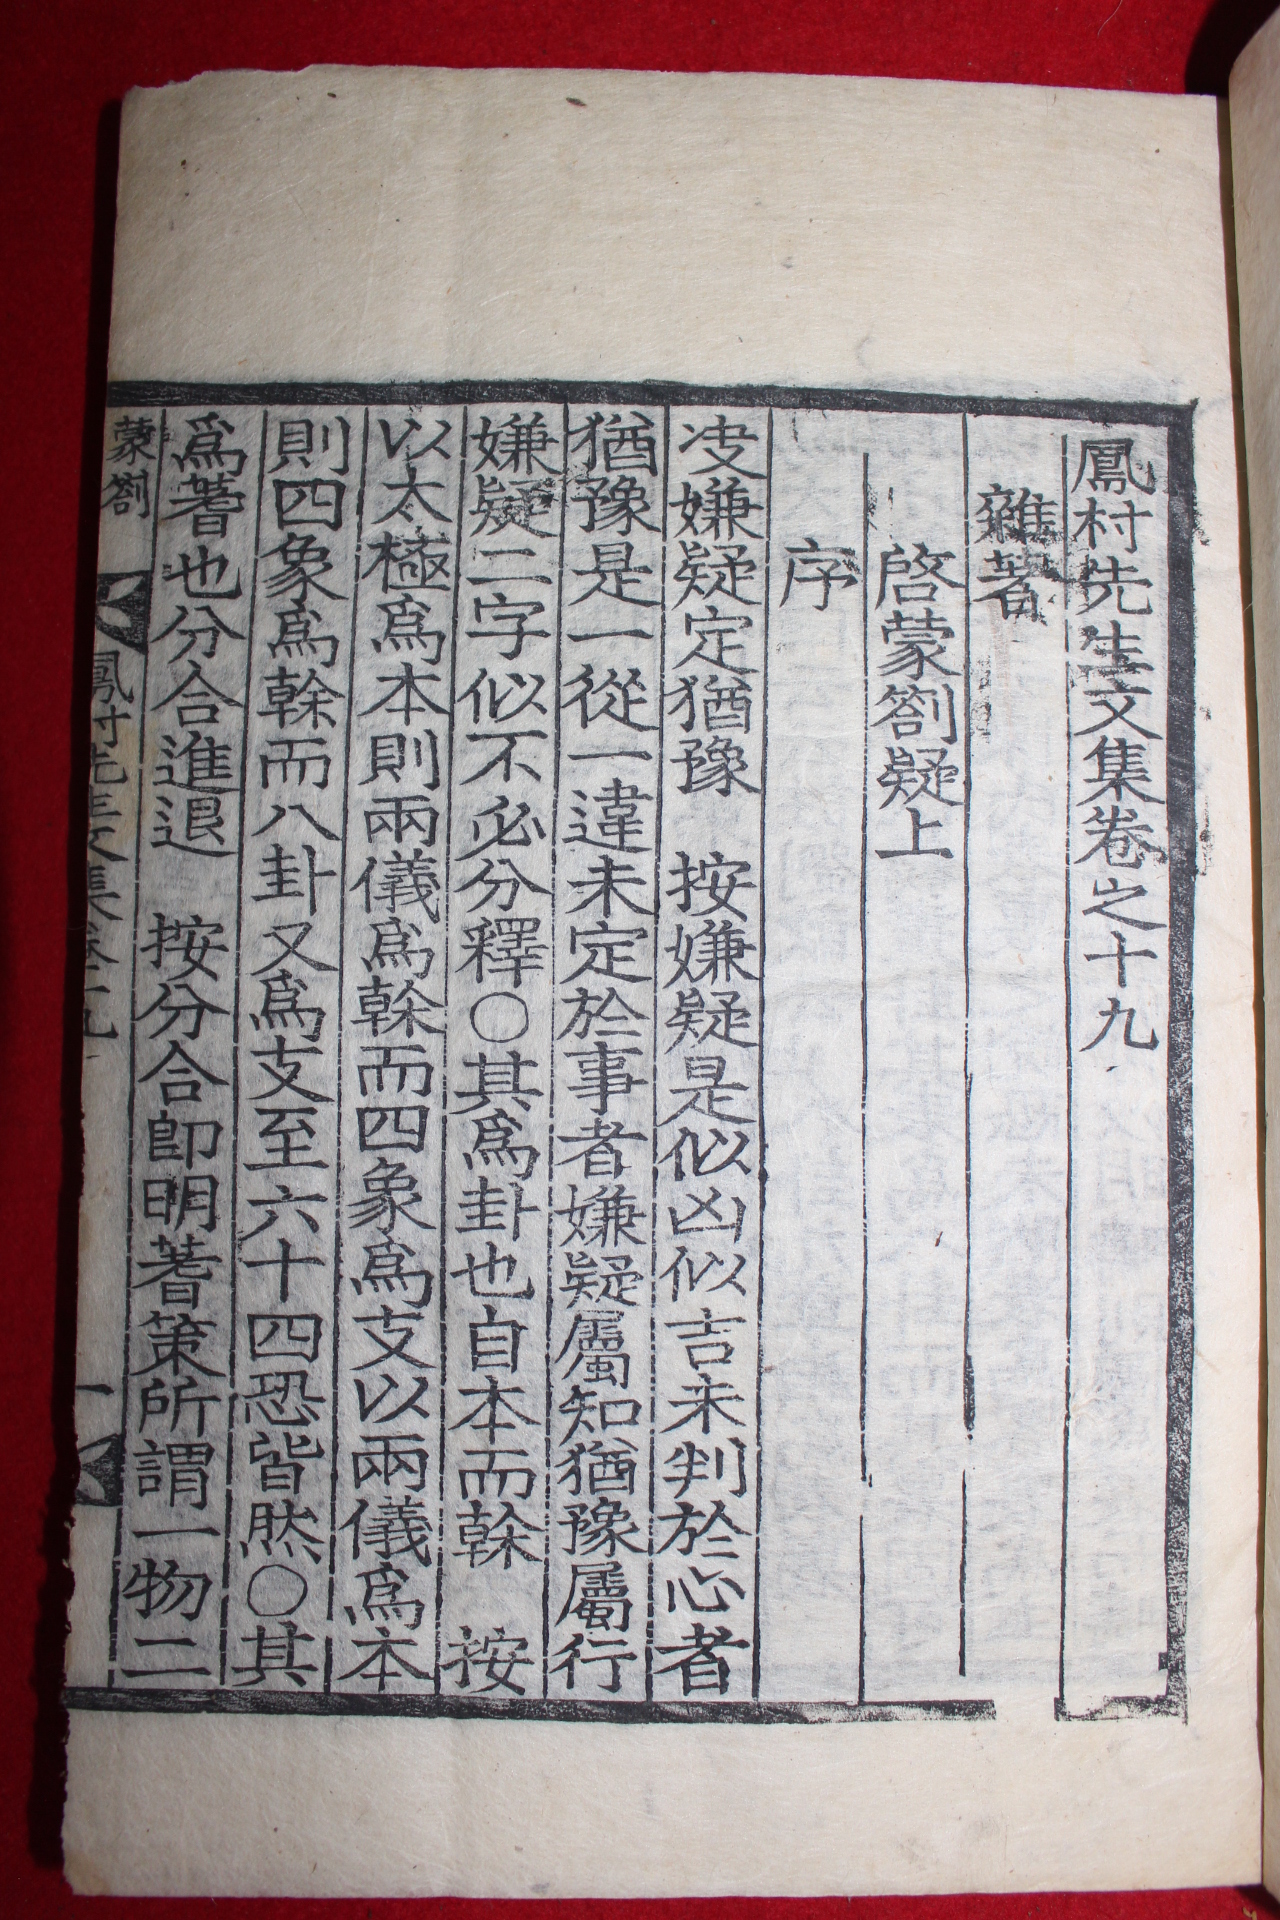 鳳村先生文集卷之十九
雜著
啓蒙劄疑上
序
决嫌疑定猶豫　按嫌疑是似凶似吉未判於心者
猶豫是一從一違未定於事者嫌疑屬知猶豫屬行
嫌疑二字似不必分釋○其爲卦也自本而榦　按
以太極爲本則兩儀爲榦而四象爲支以兩儀爲本
則四象爲榦而八卦又爲支至六十四恐皆然○其
爲蓍也分合進退　按分合卽明蓍策所謂一物二
蒙劄　鳳村先生文集卷十九　一